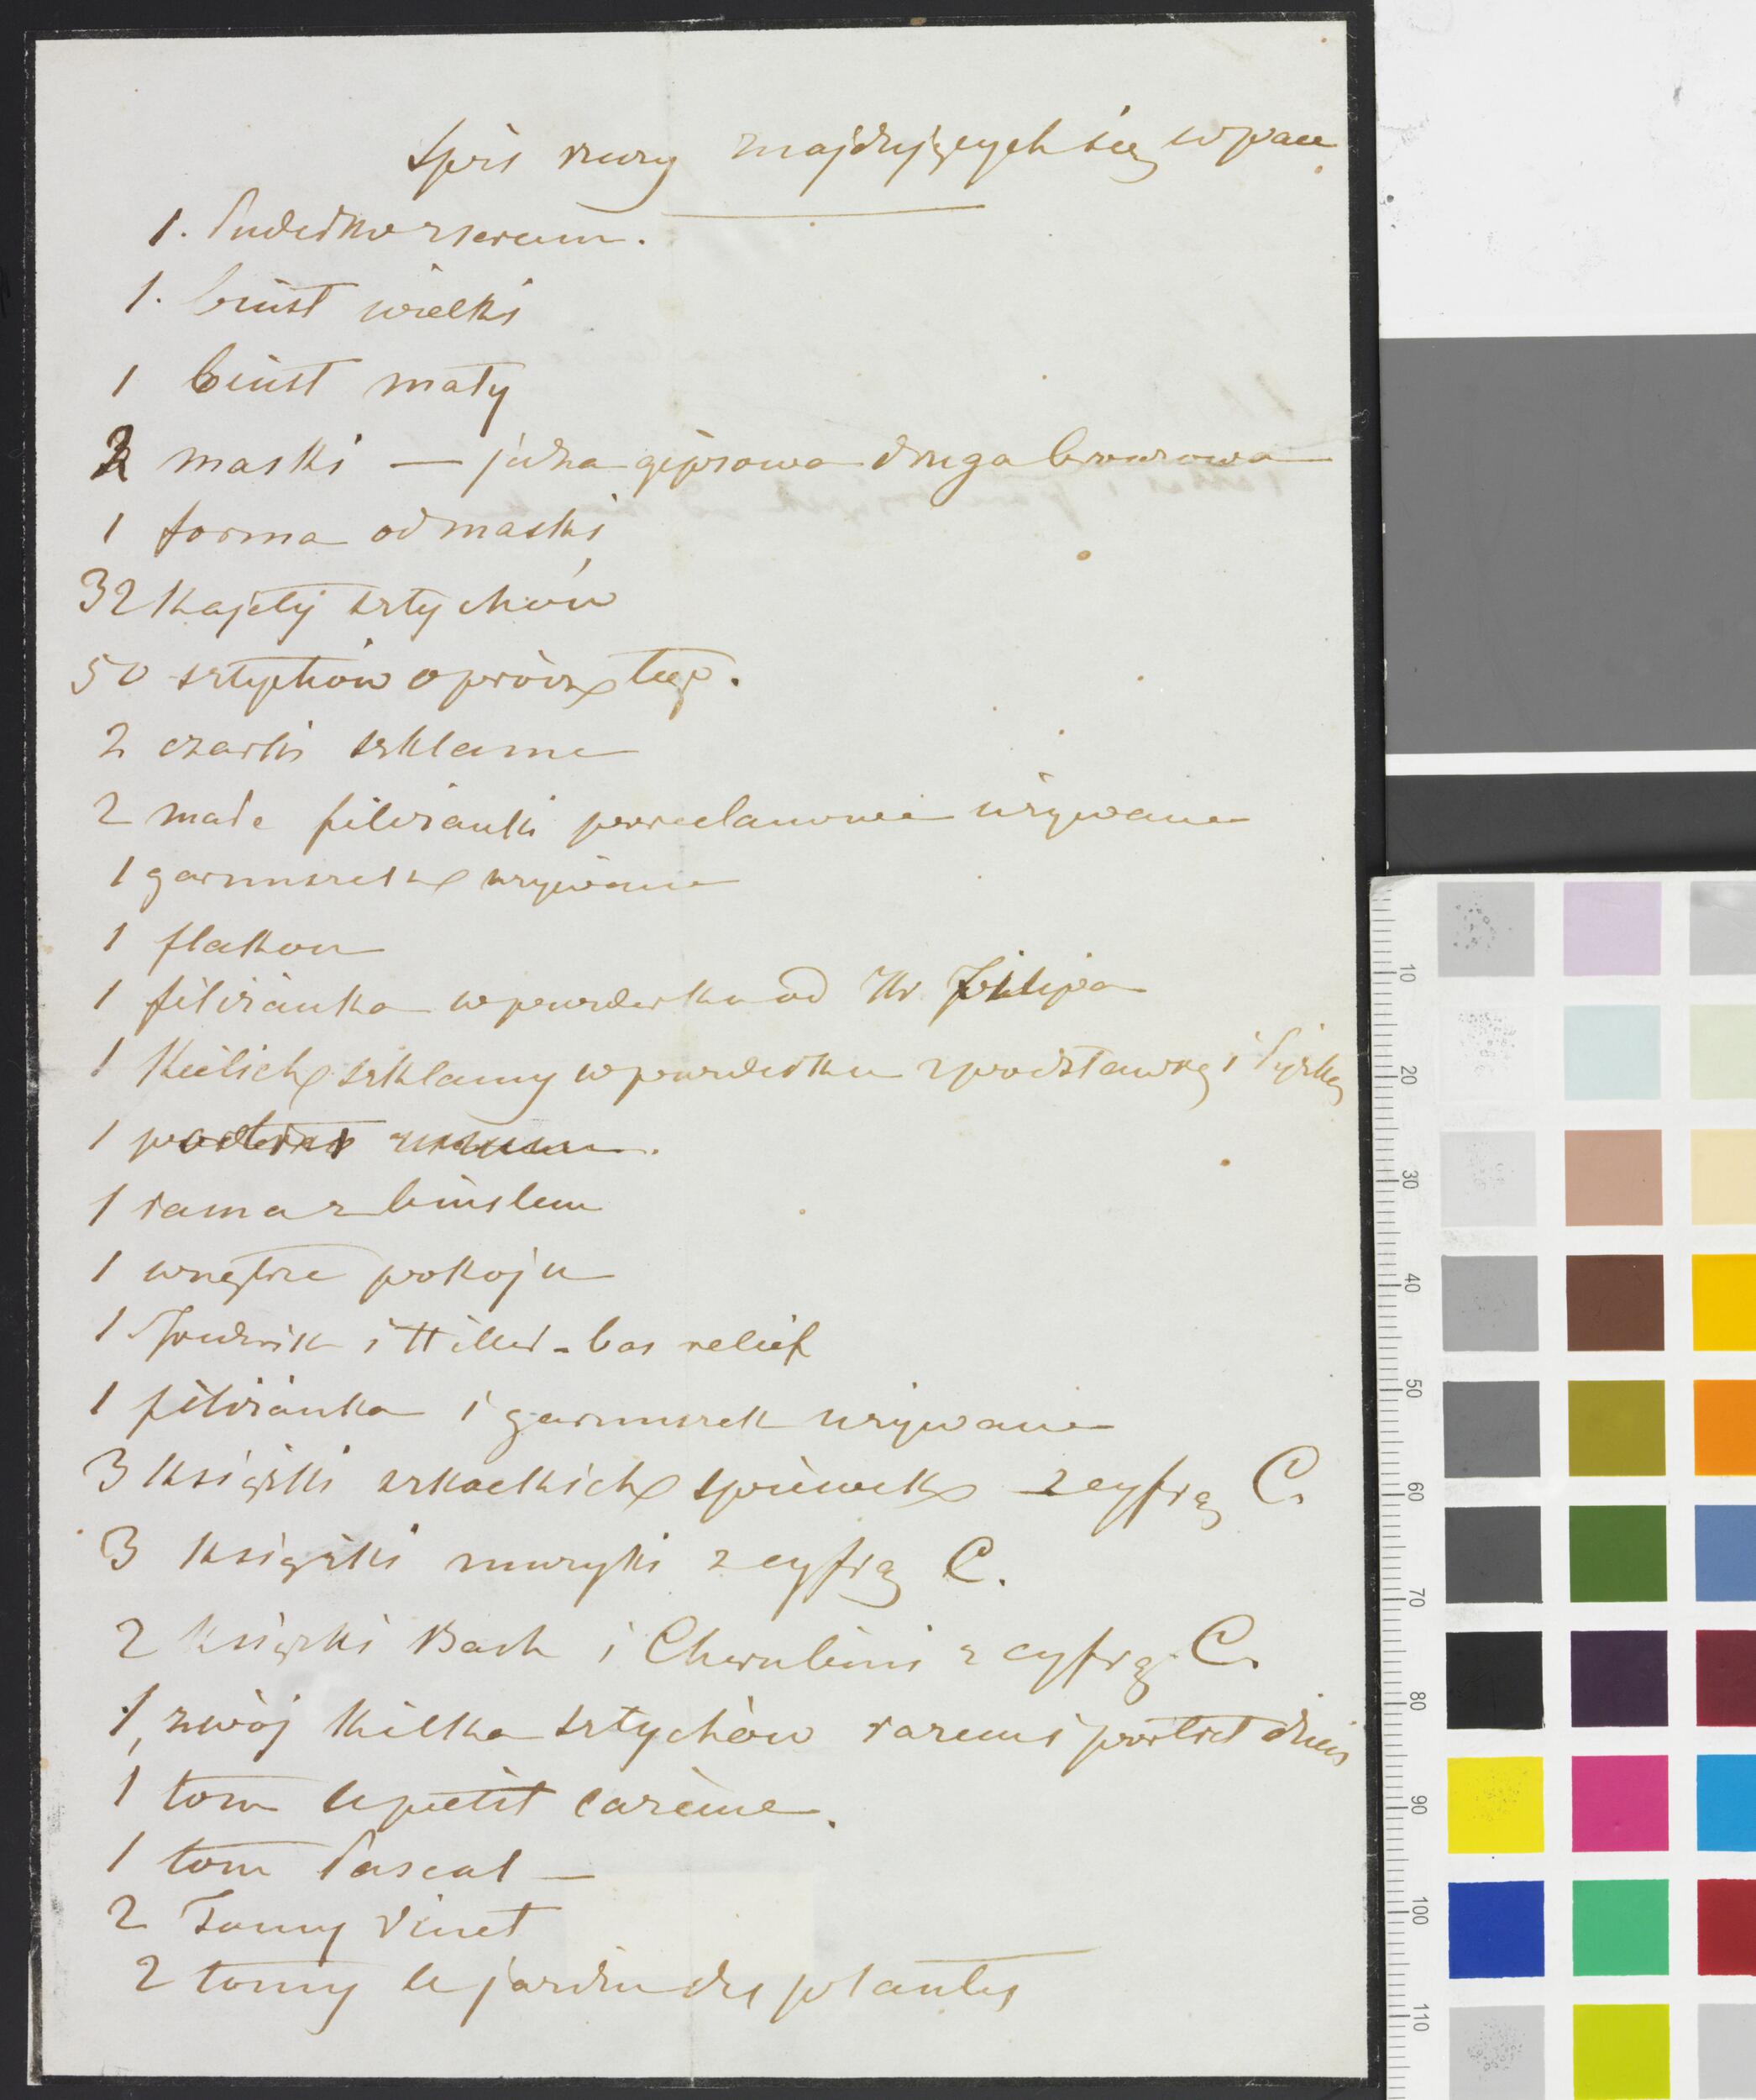 Spis rzeczy znajdujących się w pace
1. Pudełko z sercem.
1. biust wielki
1 biust mały
2 maski — jedna gipsowa druga bronzowa
1 forma od maski
32 kajety sztychów
50 sztychów oprócz tego.
2 czarki szklanne
2 małe filiżanki porcelanowe używane
1 garnuszek używane
1 flakon
1 filiżanka w pudełku od Filipa
1 Kielich szklanny w pudełku z podstawką i łyżką
1 portret
1 rama z biustem
1 wnętrze pokoju
1 Fryderik i Hiller - bas relief
1 filiżanka i garnuszek używane
3 książki szkockich śpiewek z cyfrą C.
3 książki muzyki z cyfrą C.
2 książki Bach i Cherubini z cyfrą C.
1, zwój kilka sztychów razem i portret
1 tom le petit carême.
1 tom Pascal —
2 Tomy Vinet
2 tomy le jardin des plantes
10
20
30
40
50
60
70
80
90
100
110